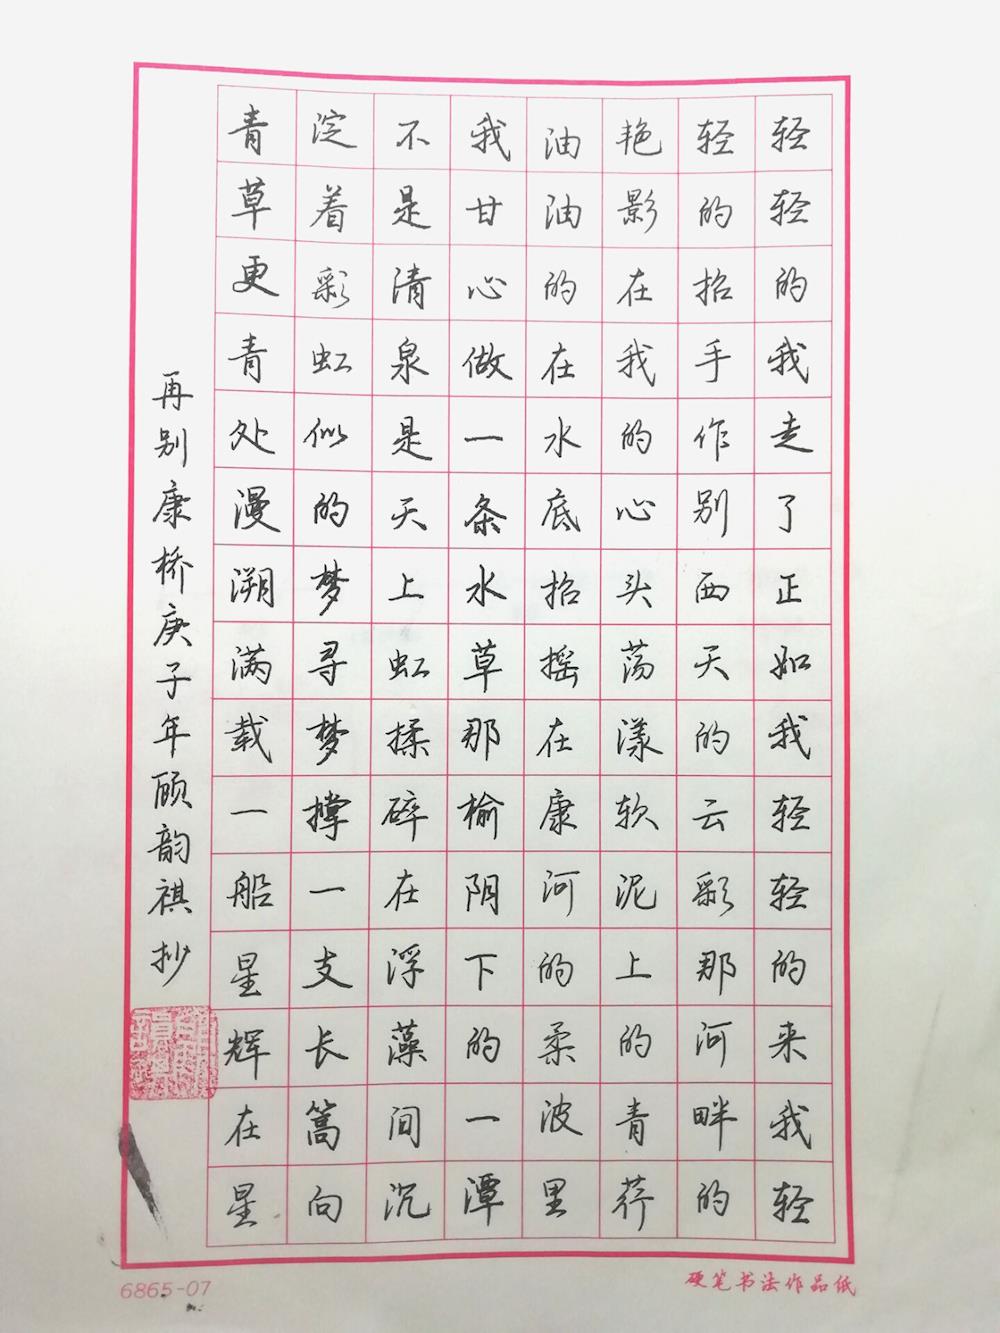 轻轻的我走了正如我轻轻的来我轻
轻的招手作别西天的云彩那河畔的
艳影在我的心头荡漾软泥上的青荇
油油的在水底招摇在康河的柔波里
我甘心做一条水草那榆阴下的一潭
不是清泉是天上虹揉碎在浮藻间沉
淀着彩虹似的梦寻梦撑一支长篙向
青草更青处漫溯满载一船星辉在星
再别康桥庚子年顾韵祺抄
6865-07
硬笔书法作品纸